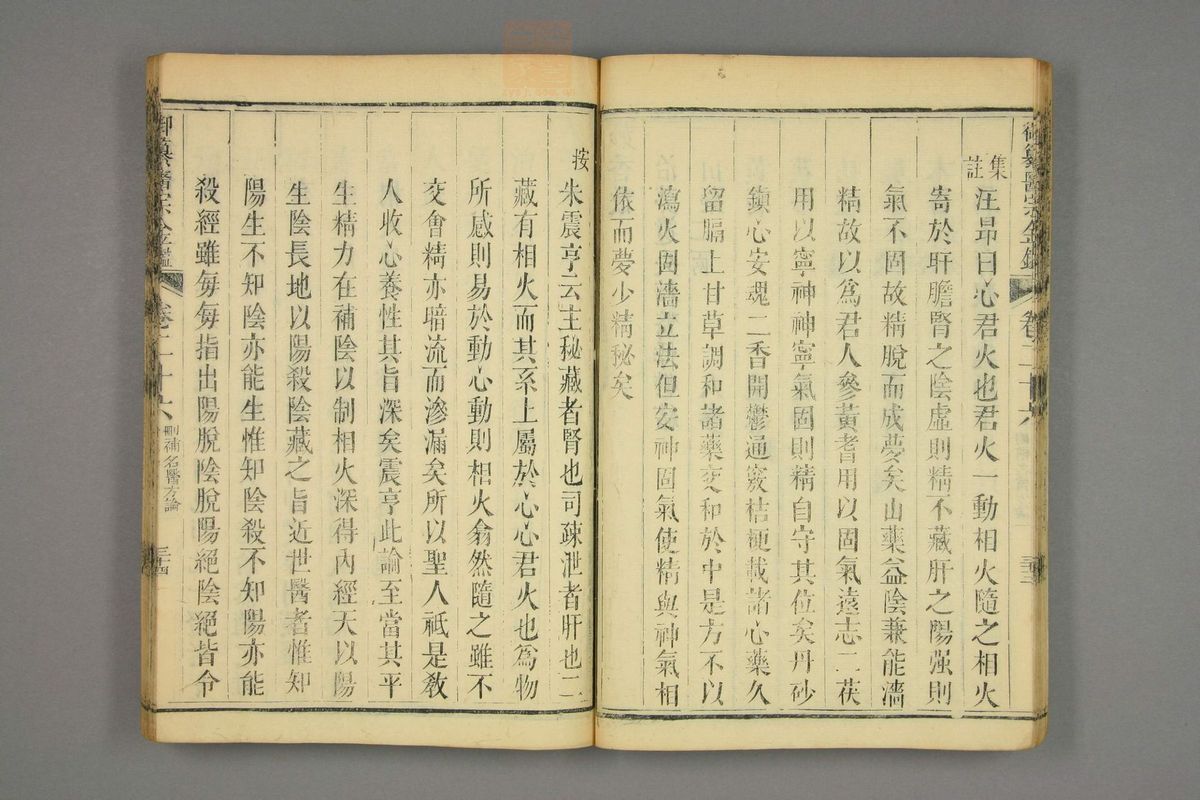 御纂醫宗金鑑 卷二十六
集註
汪昂曰心君火也君火一動相火隨之相火
寄於肝膽腎之陰虛則精不藏肝之陽强則
氣不固故精脫而成夢矣山藥益陰兼能濇
精故以爲君人參黃耆用以固氣遠志二茯
用以寧神神寧氣固則精自守其位矣丹砂
鎮心安魂二香開鬱通竅桔梗載諸心藥久
留膈上甘草調和諸藥交和於中是方不以
瀉火固濇立法但安神固氣使精與神氣相
依而夢少精秘矣
按
朱震亨云主秘藏者腎也司疎泄者肝也二
藏有相火而其系上屬於心心君火也爲物
所感則易於動心動則相火翕然隨之雖不
交會精亦暗流而滲漏矣所以聖人祗是敎
人收心養性其旨深矣震亨此論至當其平
生精力在補陰以制相火深得內經天以陽
生陰長地以陽殺陰藏之旨近世醫者惟知
陽生不知陰亦能生惟知陰殺不知陽亦能
殺經雖每每指出陽脫陰脫陽絕陰絕皆令
御纂醫宗金鑑 卷二十六 刪補名醫方論 三十四